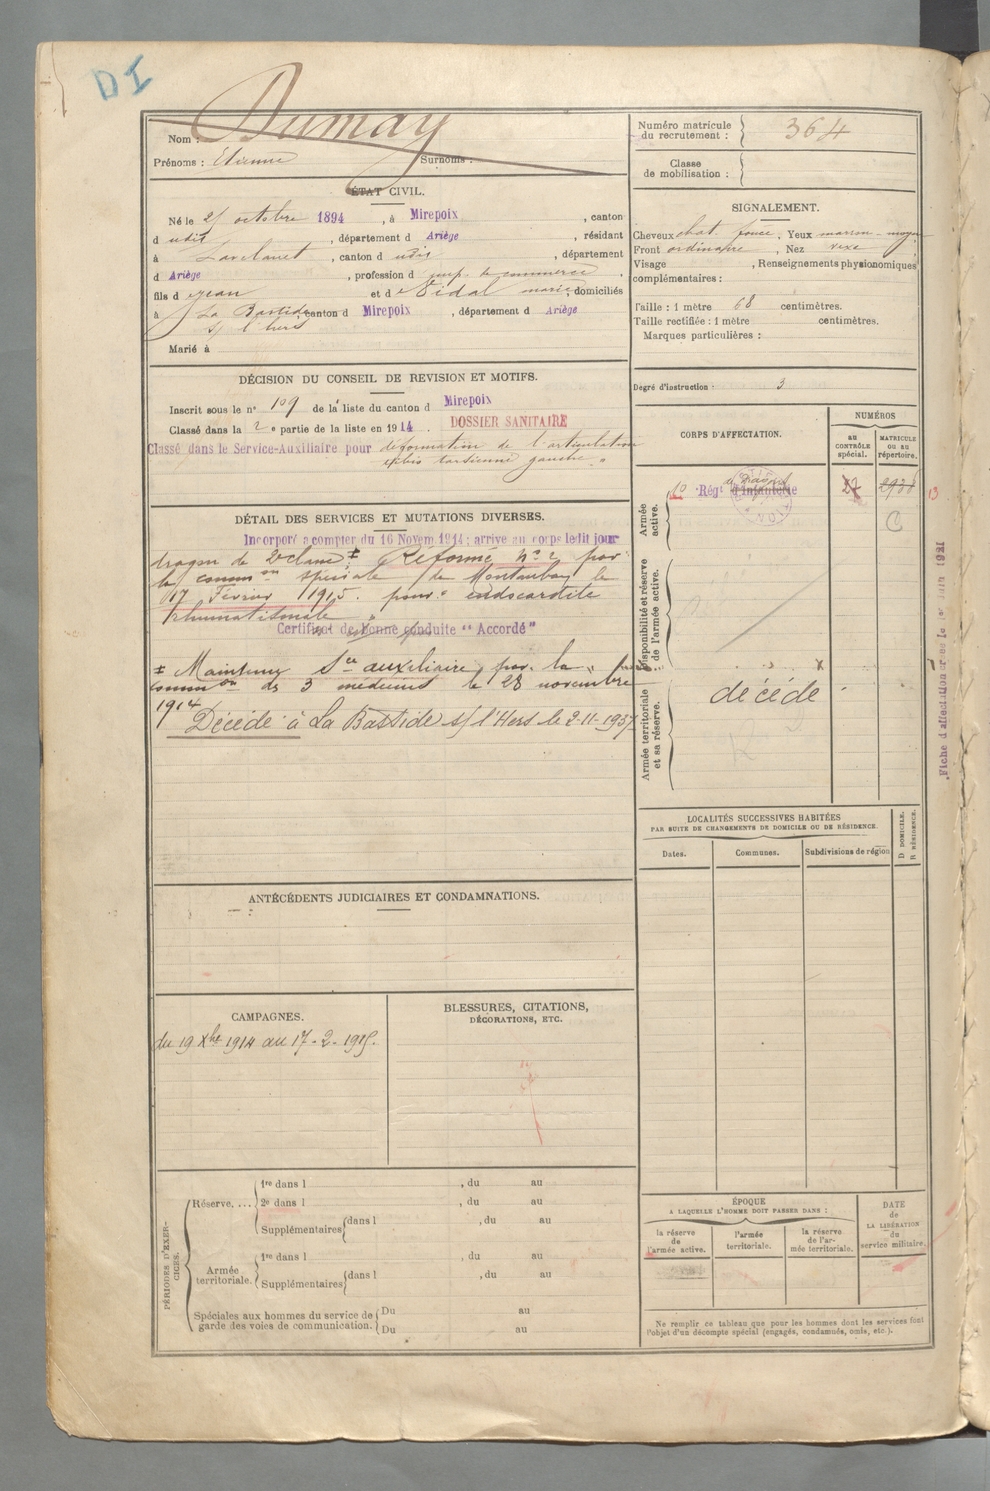 DI
Nom : Dumay
Prénoms : Etienne Surnoms :
ÉTAT CIVIL.
Né le 21 octobre 1894, à Mirepoix, canton
d udit, département d Ariège, résidant
à Lavelanet, canton d udit, département
d Ariège, profession d emp. de commerce,
fils d e Jean et d e Vidal marie, domiciliés
à La Bastide s/ l'hers, canton d Mirepoix, département d Ariège
Marié à
DÉCISION DU CONSEIL DE REVISION ET MOTIFS.
Inscrit sous le n° 109 de la liste du canton d Mirepoix
Classé dans la 2e partie de la liste en 1914. DOSSIER SANITAIRE
Classé dans le Service-Auxiliaire pour déformation de l'articulation
tibio tarsienne gauche.
DÉTAIL DES SERVICES ET MUTATIONS DIVERSES.
Incorporé à compter du 16 Novem 1914 ; arrivé au corps ledit jour
dragon de 2e classe ‡ Réformé n° 2 par
la common spéciale de Montauban le
17 Février 1915. pour : endocardite
rhumatismale
Certificat de bonne conduite “ Accordé ”
‡ Maintenu Sce auxiliaire par la
common des 3 médecins le 28 novembre
1914
Décédé à La Bastide s/ l'Hers le 2-11-1937
ANTÉCÉDENTS JUDICIAIRES ET CONDAMNATIONS.
CAMPAGNES.
du 19 Xbre 1914 au 17-2-1915.
BLESSURES, CITATIONS,
DÉCORATIONS, ETC.
PÉRIODES D'EXER-
CICES.
Réserve, ...
1re dans l , du au
2e dans l , du au
Supplémentaires dans l , du au
Armée
territoriale.
1re dans l , du au
Supplémentaires dans l , du au
Spéciales aux hommes du service de
garde des voies de communication.
Du au
Du au
Numéro matricule
du recrutement : 364
Classe
de mobilisation :
SIGNALEMENT.
Cheveux chat. foncé, Yeux marron-moyen
Front ordinaire, Nez vexe
Visage , Renseignements physionomiques
complémentaires :
Taille : 1 mètre 68 centimètres.
Taille rectifiée : 1 mètre centimètres.
Marques particulières :
Degré d'instruction : 3
CORPS D'AFFECTATION.
NUMÉROS
au
CONTRÔLE
spécial.
MATRICULE
OU AU
RÉPERTOIRE.
Armée
active.
10 Régt d'Infanterie de Dragons
27
13
C
Disponibilité et réserve
de l'armée active.
Armée territoriale
et sa réserve.
décédé
Fiche d'affectation créée le 1er Juin 1921
LOCALITÉS SUCCESSIVES HABITÉES
PAR SUITE DE CHANGEMENTS DE DOMICILE OU DE RÉSIDENCE.
D DOMICILE.
R RÉSIDENCE.
Dates.
Communes.
Subdivisions de région
ÉPOQUE
A LAQUELLE L'HOMME DOIT PASSER DANS :
la réserve
de
l'armée active.
l'armée
territoriale.
la réserve
de l'ar-
mée territoriale.
DATE
de
LA LIBÉRATION
du
service militaire.
Ne remplir ce tableau que pour les hommes dont les services font
l'objet d'un décompte spécial (engagés, condamnés, omis, etc.).